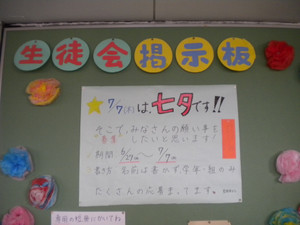 生徒会掲示板
7/7(木)は、七夕です!!
そこで、みなさんの願い事を
募集したいと思います!
期間 6/27(月)〜7/7(木)
書き方 名前は書かず学年・組のみ
たくさんの応募まってます。